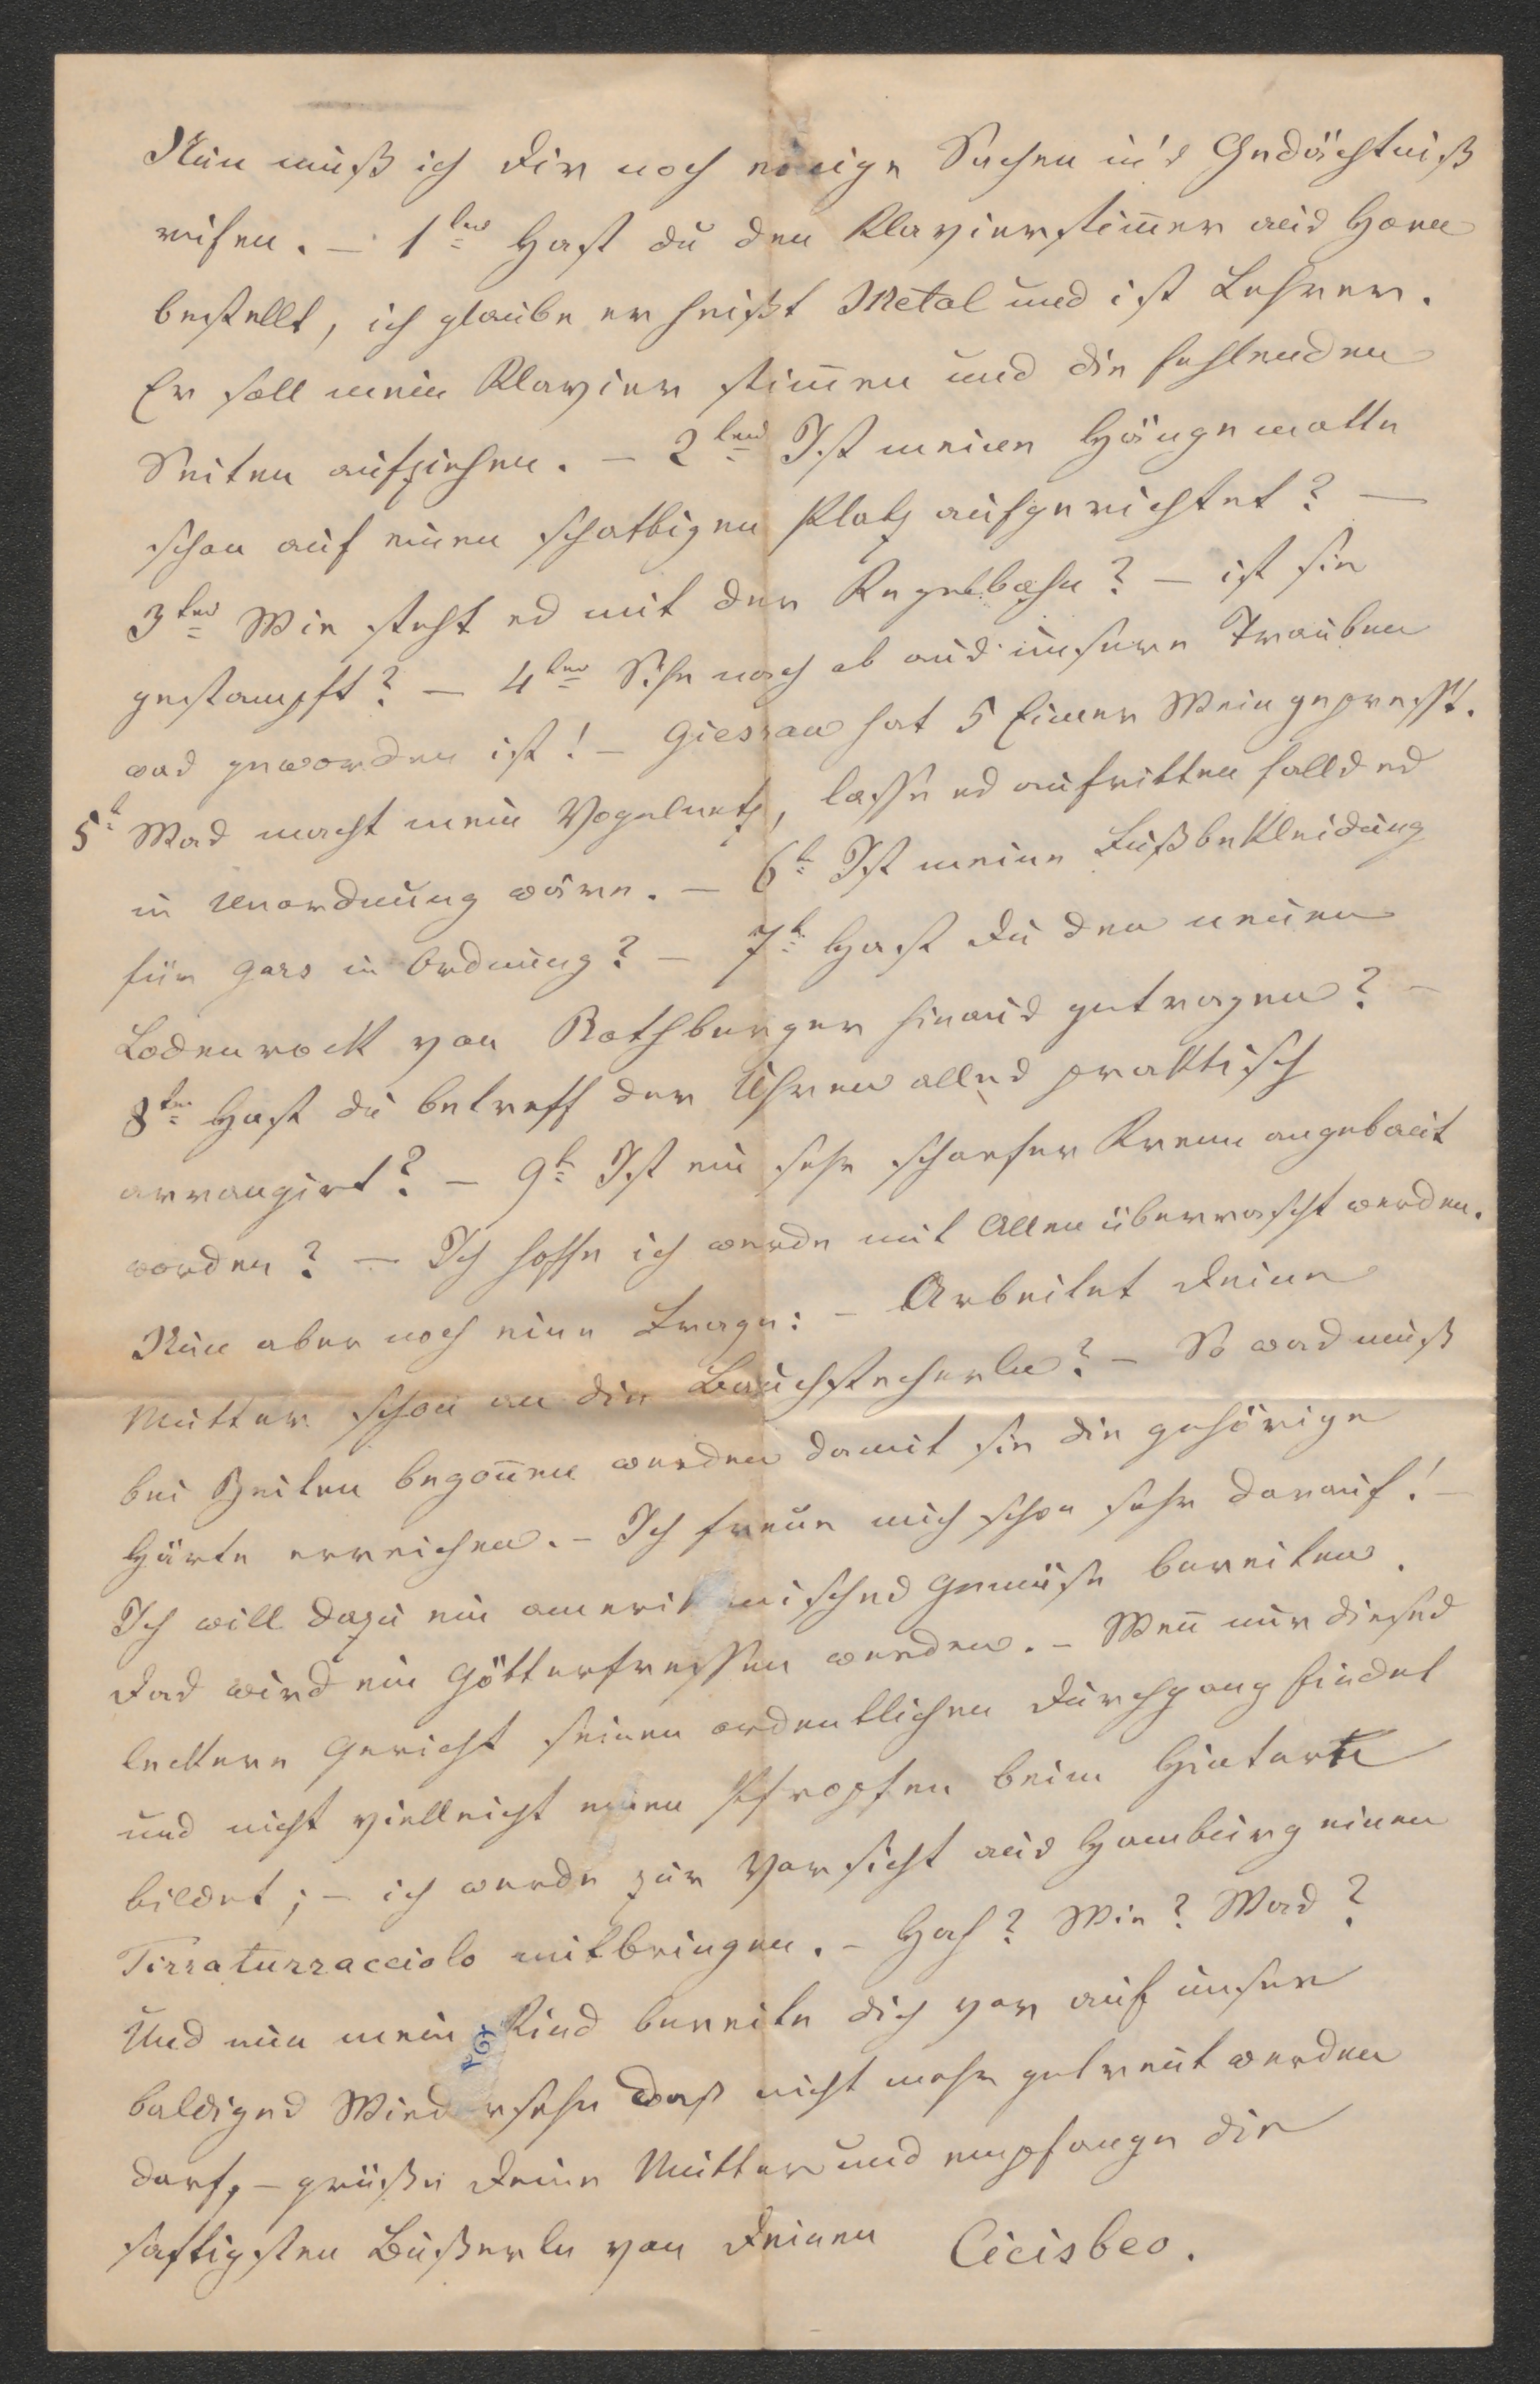 Nun muß ich Dir noch einige Sachen in's Gedächtniß
rufen. — 1tens Hast du den Klavierstim̄er aus Horn
bestellt, ich glaube er heißt Metal und ist Lehrer.
Er soll mein Klavier stim̄en und die fehlenden
Seiten aufziehen. — 2tens Ist meine Hängematte
schon auf einen schattigen Platz aufgerichtet? —
3tens Wie steht es mit der Kegelbahn? — ist sie
gestampft? — 4tens Sehe nach ob aus unsere Trauben
was geworden ist! — Giesrau hat 5 Eimer Wein gepresst.
5t Was macht mein Vogelnetz, lasse es aufritten falls es
in Unordnung wäre. — 6t Ist meine Fußbekleidung
für Gars in Ordnung? — 7t Hast Du den neuen
Lodenrock von Rothberger hinaus getragen? —
8ten Hast du betreff der Uhren alles praktisch
arrangirt? — 9t Ist ein sehr scharfer Krenn angebaut
worden? — Ich hoffe ich werde mit Allen überrascht werden.
Nun aber noch eine Frage: — Arbeitet Deine
Mutter schon an die Bauchstecherln? — So was muß
bei Zeiten begon̄en werden damit sie die gehörige
Härte erreichen. — Ich freue mich schon sehr darauf! —
Ich will dazu ein amerikanisches Gemüse bereiten.
Das wird ein Götterfressen werden. — Wen̄ nur dieses
leckere Gericht seinen ordentlichen Durchgang findet
und nicht vielleicht einen Pfropfen beim Hintern
bildet; — ich werde zur Vorsicht aus Hamburg einen
Tirraturracciolo mitbringen. — Hah? Wie? Was?
Und nun mein Kind bereite dich vor auf unser
baldiges Wiedersehn das nicht mehr getreut werden
darf, — grüße Deine Mutter und empfange die
saftigsten Bußerln von Deinen Cicisbeo.